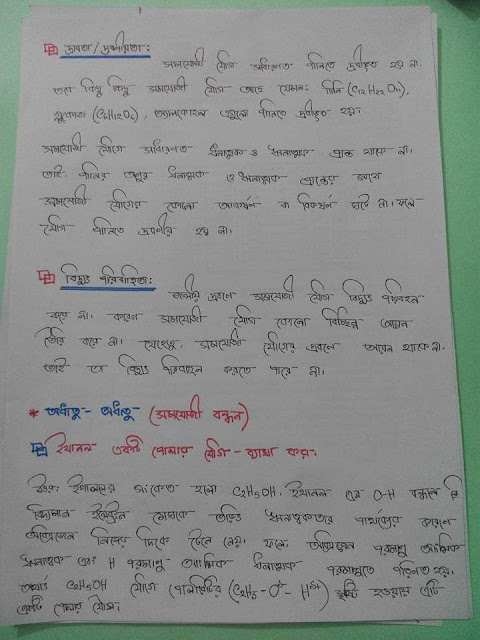 দ্রাব্যতা/দ্রবণীয়তা:
সমযোজী যৌগ সাধারণত পানিতে দ্রবীভূত হয় না।
তবে কিছু কিছু সমযোজী যৌগ আছে যেমন: চিনি (C12H22O11),
গ্লুকোজ (C6H12O6), অ্যালকোহল এগুলো পানিতে দ্রবীভূত হয়।
সমযোজী যৌগে সাধারণত ধনাত্মক ও ঋনাত্মক প্রান্ত থাকে না।
তাই পানির অনুর ধনাত্মক ও ঋনাত্মক প্রান্তের সাথে
সমযোজী যৌগের কোনো আকর্ষণ বা বিকর্ষণ ঘটে না। ফলে
যৌগ পানিতে দ্রবণীয় হয় না।
বিদ্যুৎ পরিবাহিতা:
জলীয় দ্রবণে সমযোজী যৌগ বিদ্যুৎ পরিবহন
করে না। কারণ সমযোজী যৌগ কোনো বিচ্ছিন্ন আয়ন
তৈরি করে না। যেহেতু, সমযোজী যৌগের দ্রবণে আয়ন থাকে না,
তাই তা বিদ্যুৎ পরিবহন করতে পারে না।
* অধাতু - অধাতু (সমযোজী বন্ধন)
ইথানল একটি পোলার যৌগ - ব্যাখ্যা কর।
উত্তর: ইথানলের সংকেত হলো C2H5OH. ইথানল এর O-H বন্ধনে
বিদ্যমান ইলেকট্রন তড়িৎ ঋনাত্মকতার পার্থক্যের কারণে
অক্সিজেন নিজের দিকে টেনে নেয়। ফলে অক্সিজেন পরমাণু আংশিক
ঋনাত্মক এবং H পরমাণু আংশিক ধনাত্মক পরমাণুতে পরিণত হয়।
অর্থাৎ C2H5OH যৌগে পোলারিটির (C2H5 - Oδ- - Hδ+) সৃষ্টি হওয়ায় এটি
একটি পোলার যৌগ।